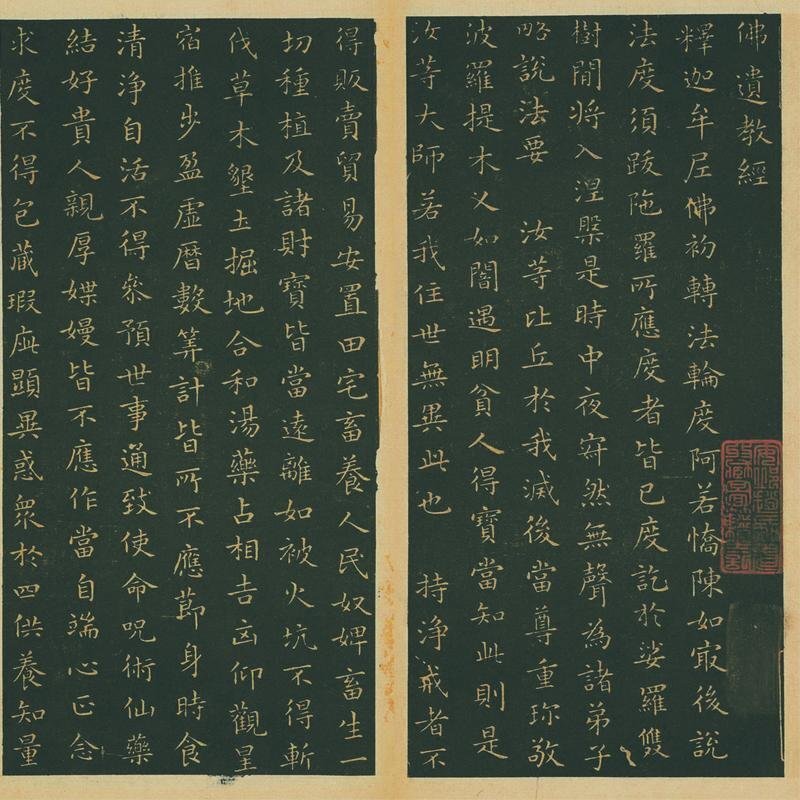 佛遺教經
釋迦牟尼佛初轉法輪度阿若憍陳如最後說
法度須跋陁羅所應度者皆已度訖於娑羅雙
樹間將入涅槃是時中夜寂然無聲為諸弟子
略說法要 汝等比丘於我滅後當尊重珎敬
波羅提木叉如闇遇明貧人得寶當知此則是
汝等大師若我住世無異此也 持淨戒者不
得販賣貿易安置田宅畜養人民奴婢畜生一
切種植及諸財寶皆當遠離如被火坑不得斬
伐草木墾土掘地合和湯藥占相吉凶仰觀星
宿推步盈虛曆數筭計皆所不應莭身時食
清淨自活不得叅預世事通致使命呪術仙藥
結好貴人親厚媟嫚皆不應作當自端心正念
求度不得包藏瑕疵顯異惑衆於四供養知量